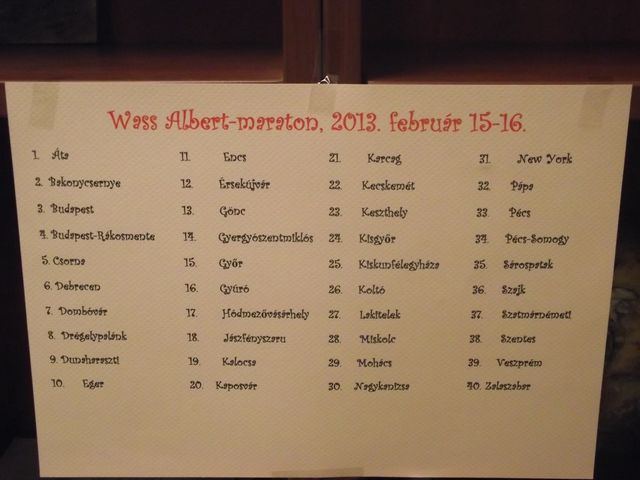 Wass Albert-maraton, 2013. február 15-16.
1. Áta
2. Bakonycsernye
3. Budapest
4. Budapest-Rákosmente
5. Csorna
6. Debrecen
7. Dombóvár
8. Drégelypalánk
9. Dunaharaszti
10. Eger
11. Encs
12. Érsekújvár
13. Gönc
14. Gyergyószentmiklós
15. Győr
16. Gyúró
17. Hódmezővásárhely
18. Jászfényszaru
19. Kalocsa
20. Kaposvár
21. Karcag
22. Kecskemét
23. Keszthely
24. Kisgyőr
25. Kiskunfélegyháza
26. Koltó
27. Lakitelek
28. Miskolc
29. Mohács
30. Nagykanizsa
31. New York
32. Pápa
33. Pécs
34. Pécs-Somogy
35. Sárospatak
36. Szajk
37. Szatmárnémeti
38. Szentes
39. Veszprém
40. Zalaszabar